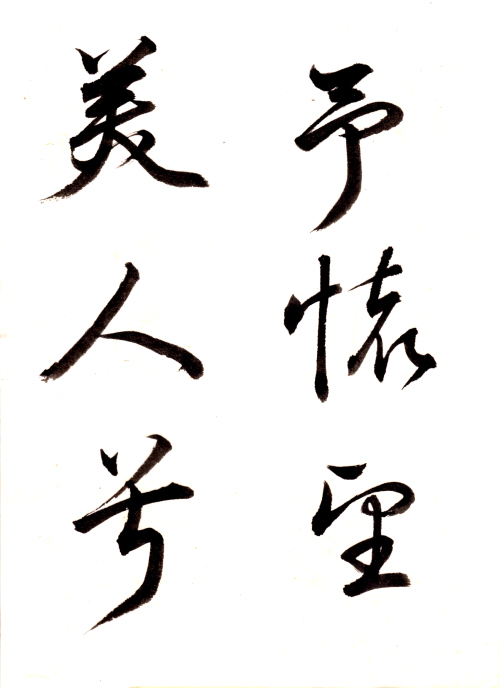 予懷望
美人兮